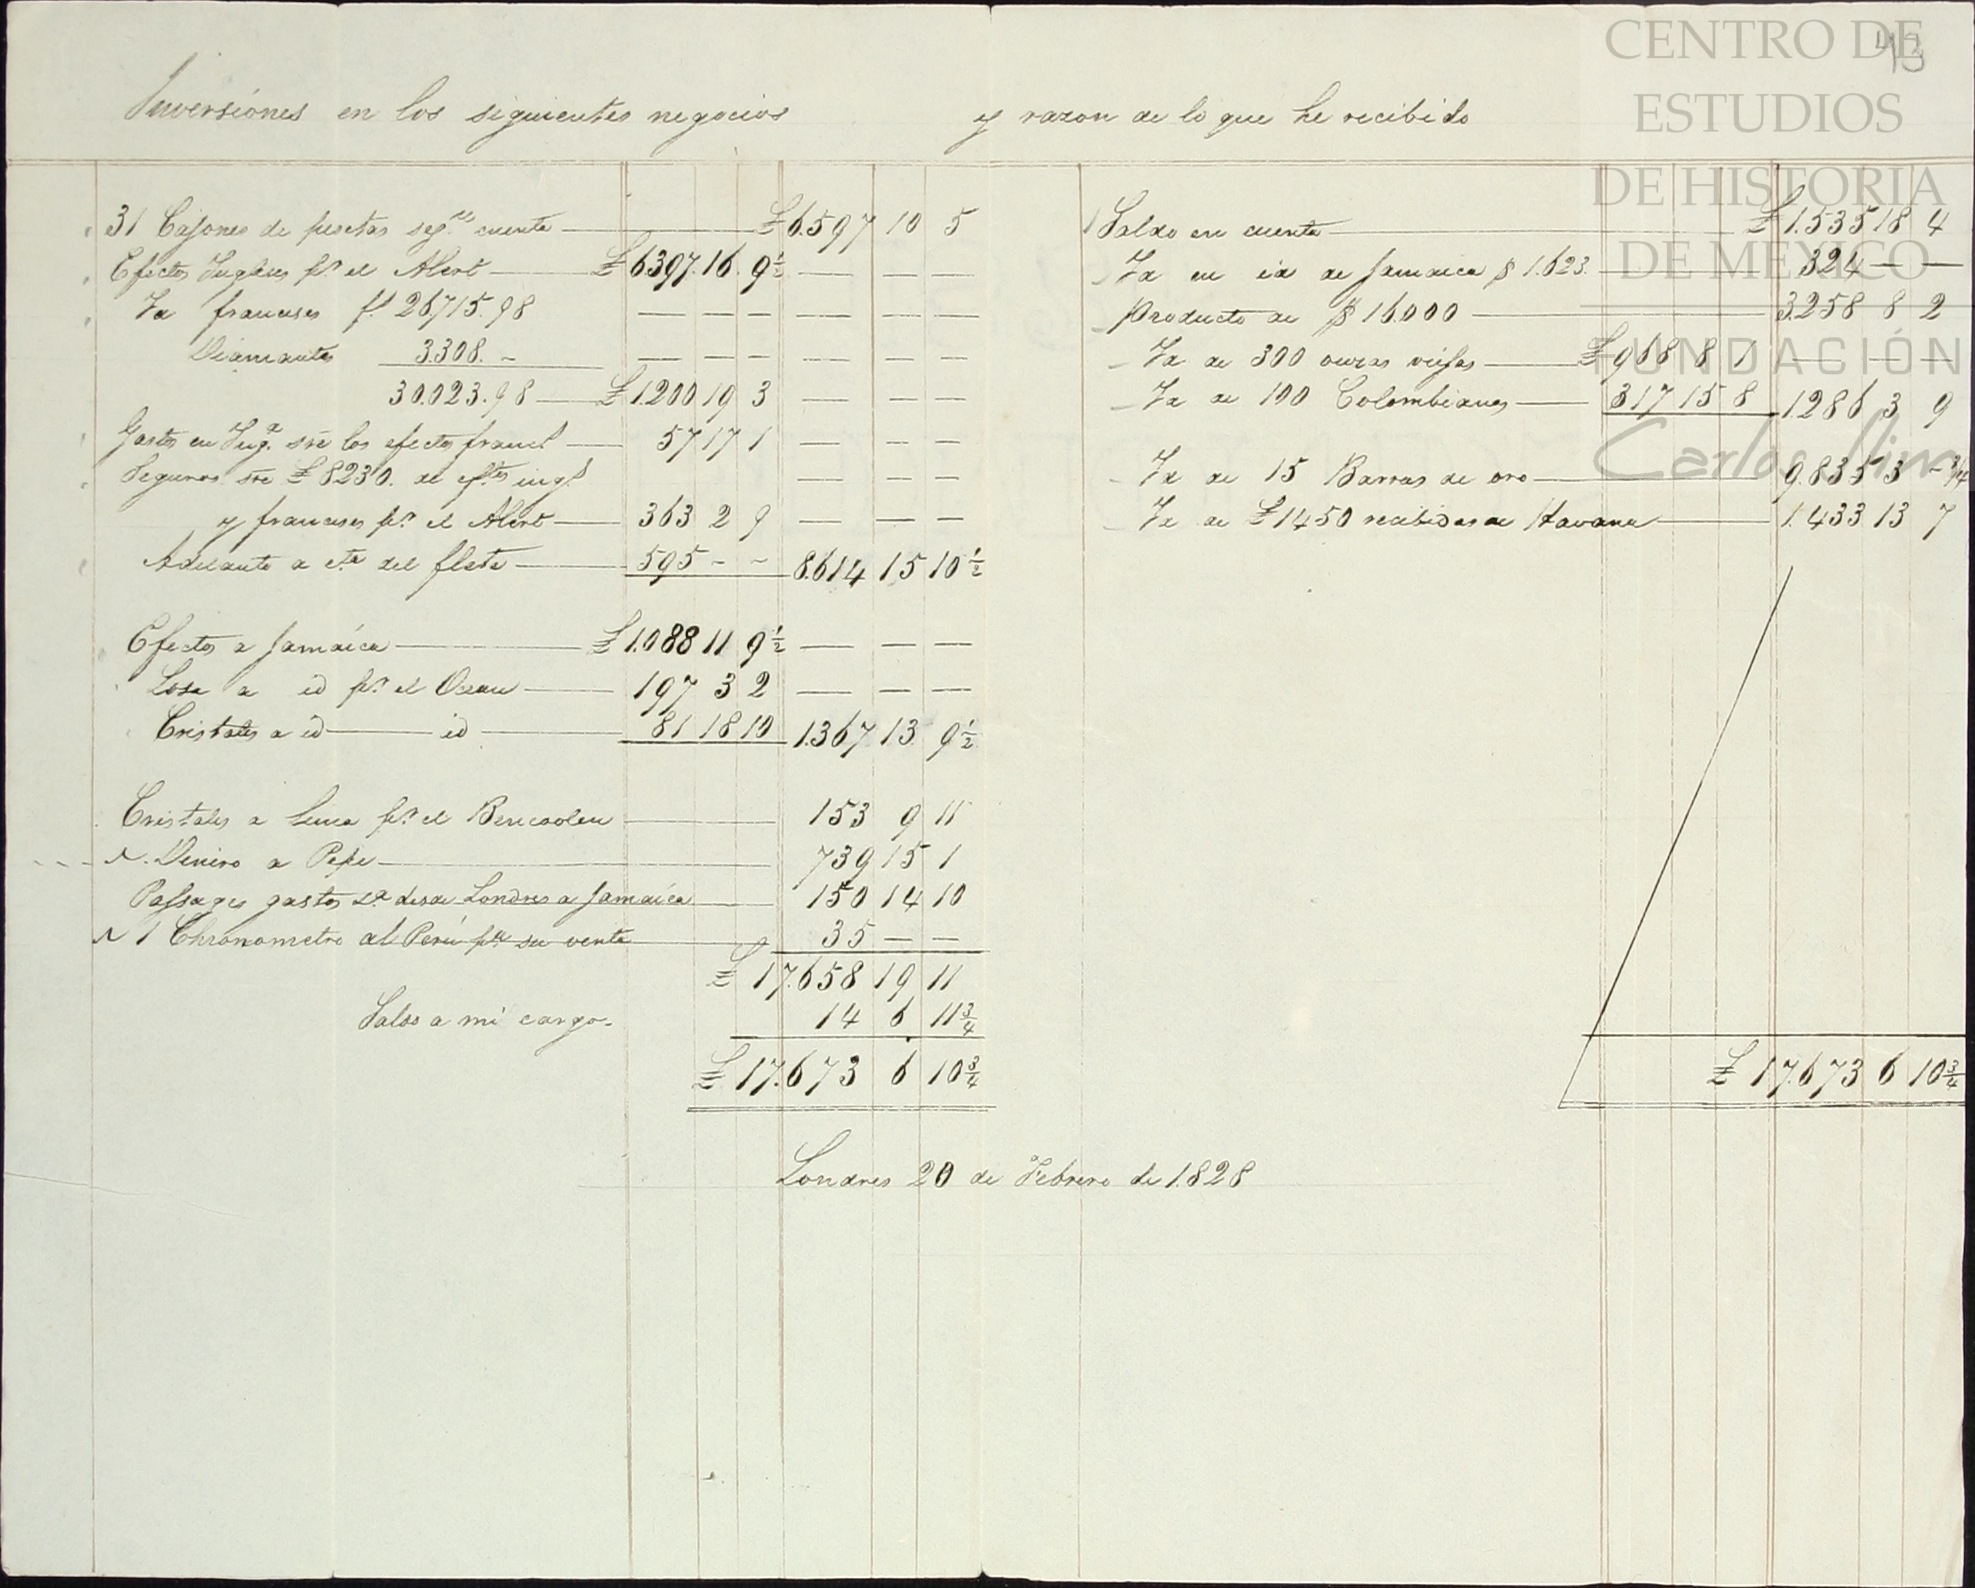 43
Inversiónes en los siguientes negocios
31 Cajones de pesetas segn cuenta £ 6.597 10 5
Efectos Ingleses pr el Alert £ 6397. 16. 9 1/2
Id franceses f. 26715.98
Diamantes 3.308. -
30.023.98 £ 1.200 19 3
Gastos en Inga sre los efectos frances 57 17 1
Seguros sre £ 8230. de eftos ings
y franceses pr el Alert 363 2 9
Adelanto a cta del flete 595 - - 8.614 15 10 1/2
Efectos a Jamaíca £ 1.088 11 9 1/2
Losa a id pr el Ocean 197 3 2
Cristales a id id 81 18 10 1.367 13 9 1/2
Cristales a Lima pr el Bencoolen 153 9 11
Dinero a Pepe 739 15 1
Passages gastos &a desde Londres a Jamaíca 150 14 10
1 Chronometro al Perú pa su venta 35 - -
£ 17.658 19 11
Saldo a mi cargo. 14 6 11 3/4
£ 17.673 6 10 3/4
y razon de lo que he recibido
Saldo en cuenta £ 1.535 18 4
Id en id de Jamaica $ 1.623. 324 - -
Producto de $ 16.000 3.258 8 2
Id de 300 onzas viejas £ 968 8 1
Id de 100 Colombianas 317 15 8 1.286 3 9
Id de 15 Barras de oro 9.835 3 - 3/4
Id de £ 1450 recibidas de Havana 1.433 13 7
£ 17.673 6 10 3/4
Londres 20 de Febrero de 1.828
CENTRO DE
ESTUDIOS
DE HISTORIA
DE MEXICO
FUNDACIÓN
Carlos Slim